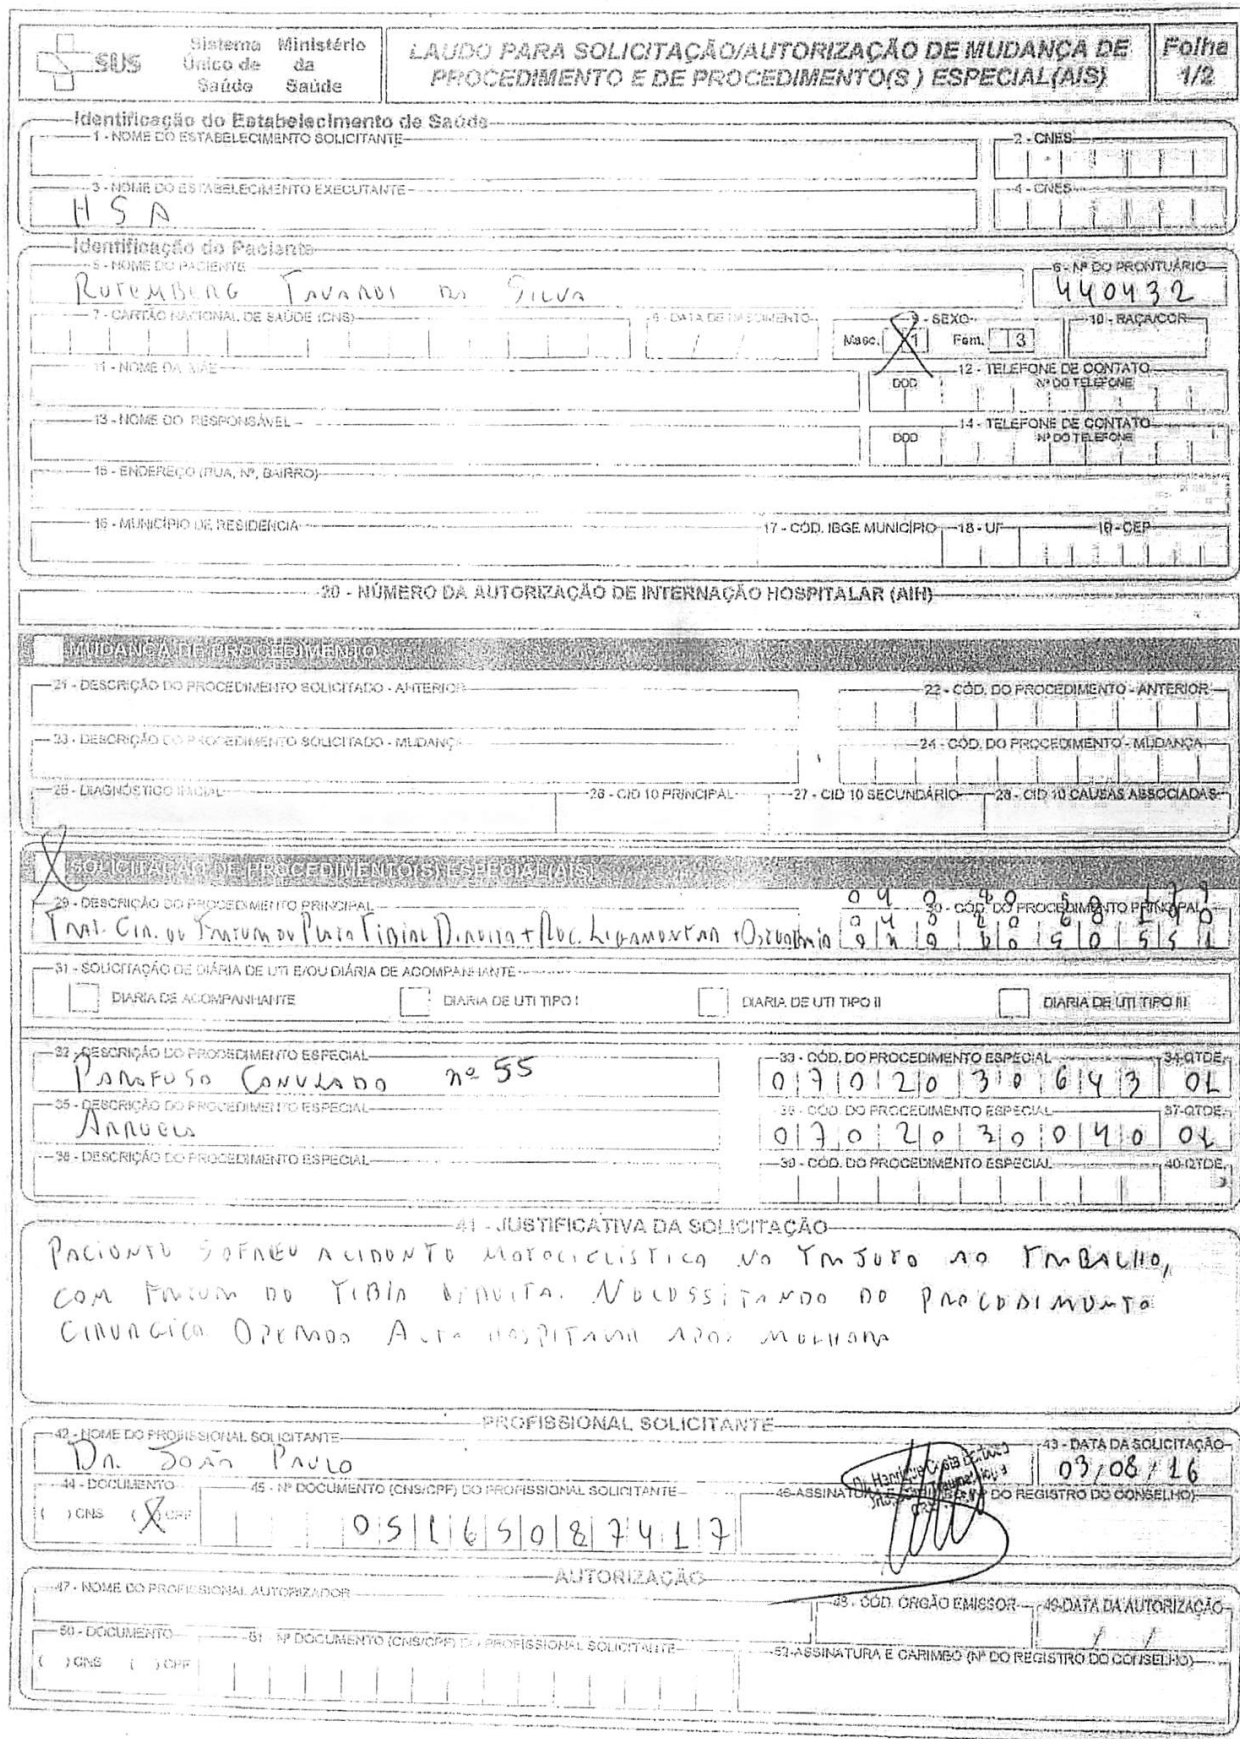 SUS
Sistema Único de Saúde
Ministério da Saúde
LAUDO PARA SOLICITAÇÃO/AUTORIZAÇÃO DE MUDANÇA DE PROCEDIMENTO E DE PROCEDIMENTO(S) ESPECIAL(AIS)
Folha 1/2
Identificação do Estabelecimento de Saúde
1 - NOME DO ESTABELECIMENTO SOLICITANTE
2 - CNES
3 - NOME DO ESTABELECIMENTO EXECUTANTE
4 - CNES
HSA
Identificação do Paciente
5 - NOME DO PACIENTE
6 - Nº DO PRONTUÁRIO
RUTEMBERG TAVARES DA SILVA
440432
7 - CARTÃO NACIONAL DE SAÚDE (CNS)
8 - DATA DE NASCIMENTO
9 - SEXO
10 - RAÇA/COR
Masc. X 1 Fem. 3
11 - NOME DA MÃE
12 - TELEFONE DE CONTATO
DDD Nº DO TELEFONE
13 - NOME DO RESPONSÁVEL
14 - TELEFONE DE CONTATO
DDD Nº DO TELEFONE
15 - ENDEREÇO (RUA, Nº, BAIRRO)
16 - MUNICÍPIO DE RESIDÊNCIA
17 - CÓD. IBGE MUNICÍPIO
18 - UF
19 - CEP
20 - NÚMERO DA AUTORIZAÇÃO DE INTERNAÇÃO HOSPITALAR (AIH)
MUDANÇA DE PROCEDIMENTO
21 - DESCRIÇÃO DO PROCEDIMENTO SOLICITADO - ANTERIOR
22 - CÓD. DO PROCEDIMENTO - ANTERIOR
23 - DESCRIÇÃO DO PROCEDIMENTO SOLICITADO - MUDANÇA
24 - CÓD. DO PROCEDIMENTO - MUDANÇA
25 - DIAGNÓSTICO INICIAL
26 - CID 10 PRINCIPAL
27 - CID 10 SECUNDÁRIO
28 - CID 10 CAUSAS ASSOCIADAS
X SOLICITAÇÃO DE PROCEDIMENTO(S) ESPECIAL(AIS)
29 - DESCRIÇÃO DO PROCEDIMENTO PRINCIPAL
30 - CÓD. DO PROCEDIMENTO PRINCIPAL
TRAT. CIR. DE FRATURA DO PLATO TIBIAL DIREITA + REC. LIGAMENTAR + OSTEOTOMIA
0408050551
31 - SOLICITAÇÃO DE DIÁRIA DE UTI E/OU DIÁRIA DE ACOMPANHANTE
DIARIA DE ACOMPANHANTE
DIARIA DE UTI TIPO I
DIARIA DE UTI TIPO II
DIARIA DE UTI TIPO III
32 - DESCRIÇÃO DO PROCEDIMENTO ESPECIAL
33 - CÓD. DO PROCEDIMENTO ESPECIAL
34-QTDE.
PARAFUSO CANULADO nº 55
0702030643
01
35 - DESCRIÇÃO DO PROCEDIMENTO ESPECIAL
36 - CÓD. DO PROCEDIMENTO ESPECIAL
37-QTDE.
ARRUELA
0702030040
01
38 - DESCRIÇÃO DO PROCEDIMENTO ESPECIAL
39 - CÓD. DO PROCEDIMENTO ESPECIAL
40-QTDE.
41 - JUSTIFICATIVA DA SOLICITAÇÃO
PACIENTE SOFREU ACIDENTE MOTOCICLISTICO NO TRAJETO AO TRABALHO,
COM FRATURA DA TIBIA DIREITA. NECESSITANDO DO PROCEDIMENTO
CIRURGICO OPERADO ALTA HOSPITALAR APOS MELHORA
PROFISSIONAL SOLICITANTE
42 - NOME DO PROFISSIONAL SOLICITANTE
43 - DATA DA SOLICITAÇÃO
DR. JOÃO PAULO
03/08/16
44 - DOCUMENTO
45 - Nº DOCUMENTO (CNS/CPF) DO PROFISSIONAL SOLICITANTE
46-ASSINATURA E CARIMBO (Nº DO REGISTRO DO CONSELHO)
( ) CNS (X) CPF
05165087417
AUTORIZAÇÃO
47 - NOME DO PROFISSIONAL AUTORIZADOR
48 - CÓD. ÓRGÃO EMISSOR
49-DATA DA AUTORIZAÇÃO
50 - DOCUMENTO
51 - Nº DOCUMENTO (CNS/CPF) DO PROFISSIONAL SOLICITANTE
52-ASSINATURA E CARIMBO (Nº DO REGISTRO DO CONSELHO)
( ) CNS ( ) CPF